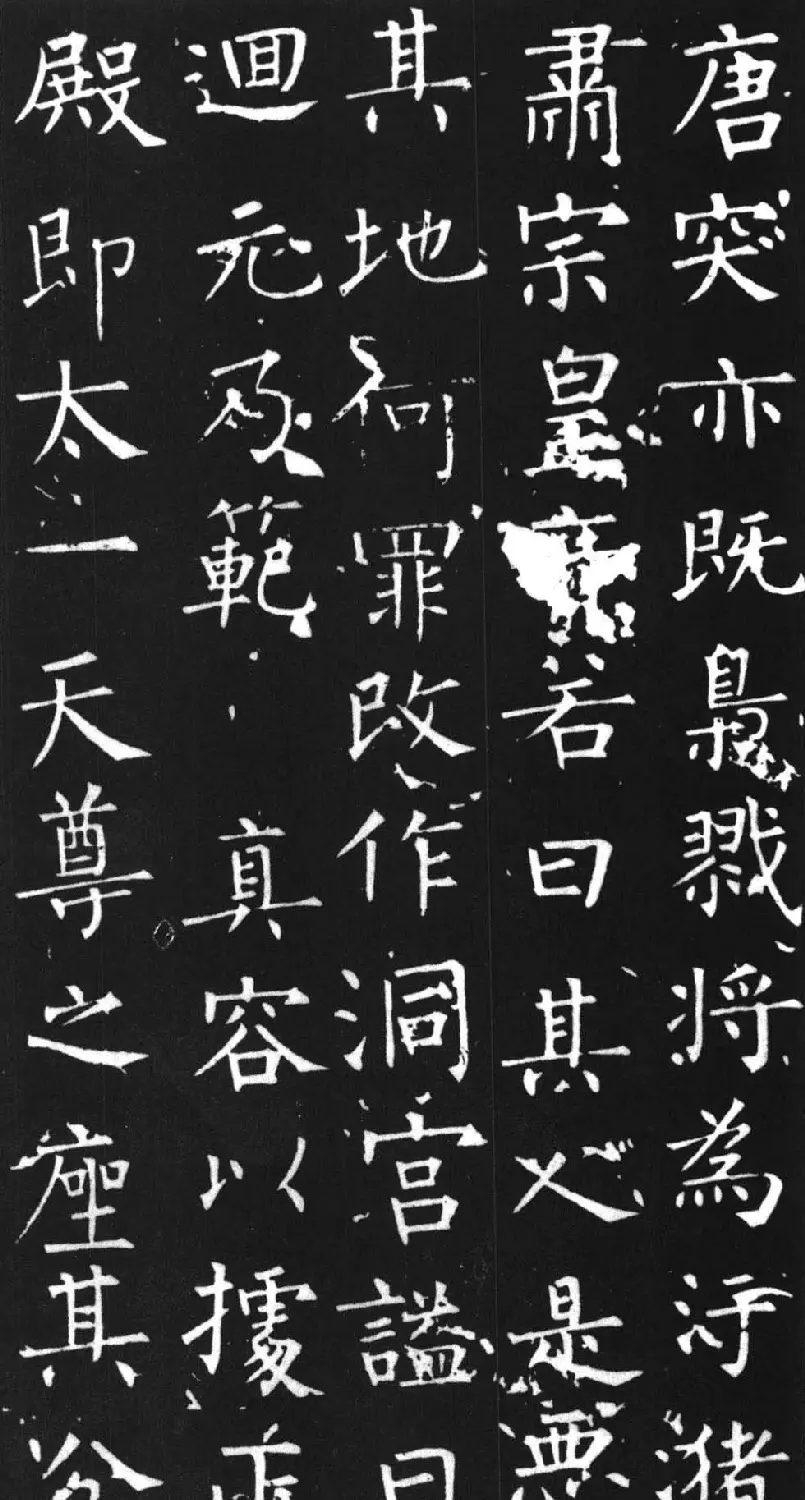 唐突亦既梟戮將為汙潴
肅宗皇若曰其人是惡
其地何罪改作洞宮謚曰
迴元乃範真容以據正
殿即太一天尊之座其